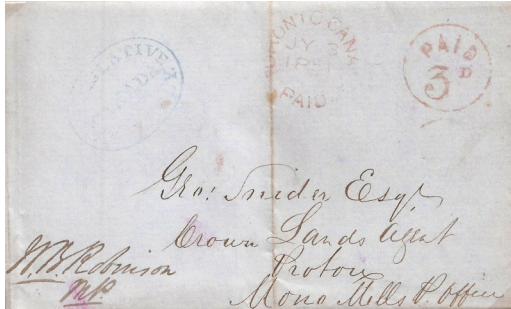 TORONTO CANA
JY 3
185
PAID
PAID
3D
Geo: Snider Esqr
Crown Lands Agent
Proton
Mono Mills P. Office
W.B. Robinson
MP.